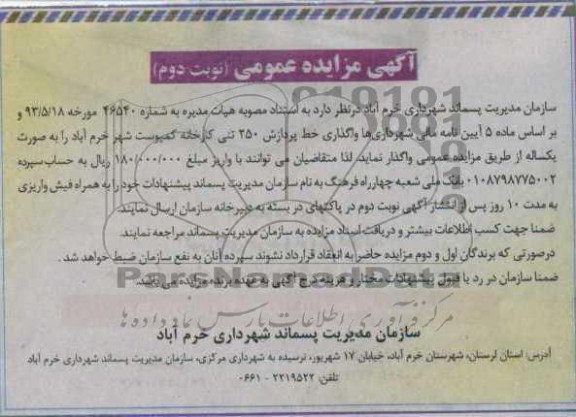 آگهی مزایده عمومی (نوبت دوم)
سازمان مدیریت پسماند شهرداری خرم آباد درنظر دارد به استناد مصوبه هیات مدیره به شماره ۴۶۵۴۰ مورخه ۹۳/۵/۱۸ و
بر اساس ماده ۵ آیین نامه مالی شهرداری‌ها واگذاری خط پردازش ۲۵۰ تنی کارخانه کمپوست شهر خرم آباد را به صورت
یکساله از طریق مزایده عمومی واگذار نماید. لذا متقاضیان می توانند با واریز مبلغ ۱۸۰/۰۰۰/۰۰۰ ریال به حساب سپرده
۰۱۰۸۷۹۸۷۷۵۰۰۲ بانک ملی شعبه چهارراه فرهنگ به نام سازمان مدیریت پسماند پیشنهادات خود را به همراه فیش واریزی
به مدت ۱۰ روز پس از انتشار آگهی نوبت دوم در پاکتهای در بسته به دبیرخانه سازمان ارسال نمایند.
ضمنا جهت کسب اطلاعات بیشتر و دریافت اسناد مزایده به سازمان مدیریت پسماند مراجعه نمایند.
درصورتی که برندگان اول و دوم مزایده حاضر به انعقاد قرارداد نشوند سپرده آنان به نفع سازمان ضبط خواهد شد.
ضمنا سازمان در رد یا قبول پیشنهادات مختار و هزینه درج آگهی به عهده برنده مزایده می باشد.
ParsNamadData
مرکز فرآوری اطلاعات پارس نماد داده ها
سازمان مدیریت پسماند شهرداری خرم آباد
آدرس: استان لرستان، شهرستان خرم آباد، خیابان ۱۷ شهریور، نرسیده به شهرداری مرکزی، سازمان مدیریت پسماند شهرداری خرم آباد
تلفن: ۲۲۱۹۵۲۲ - ۰۶۶۱